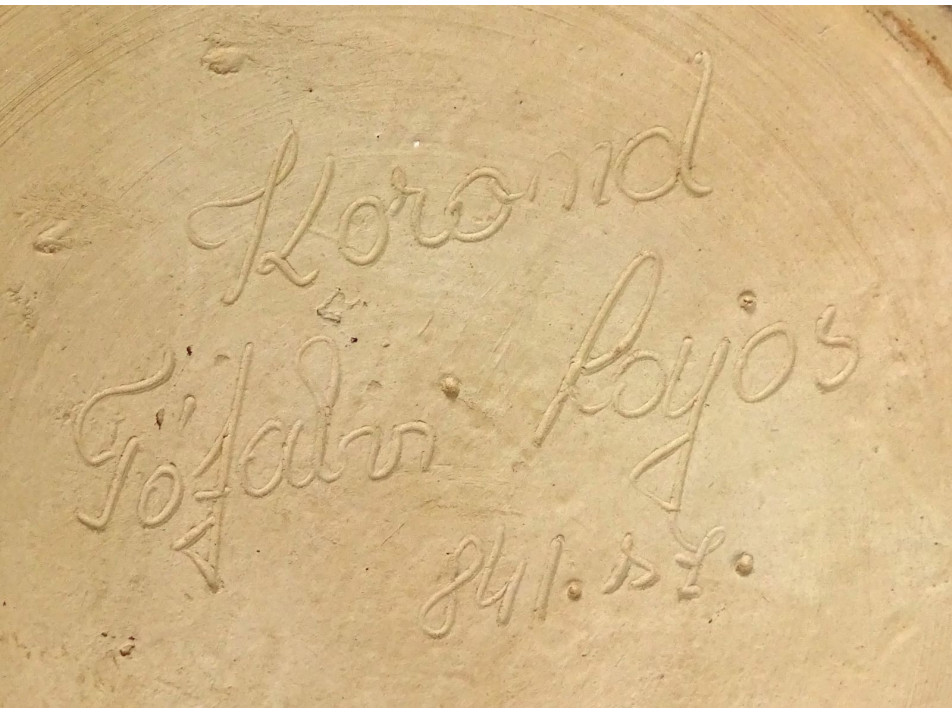 Korond
Tófalvi Lajos
841. sz.